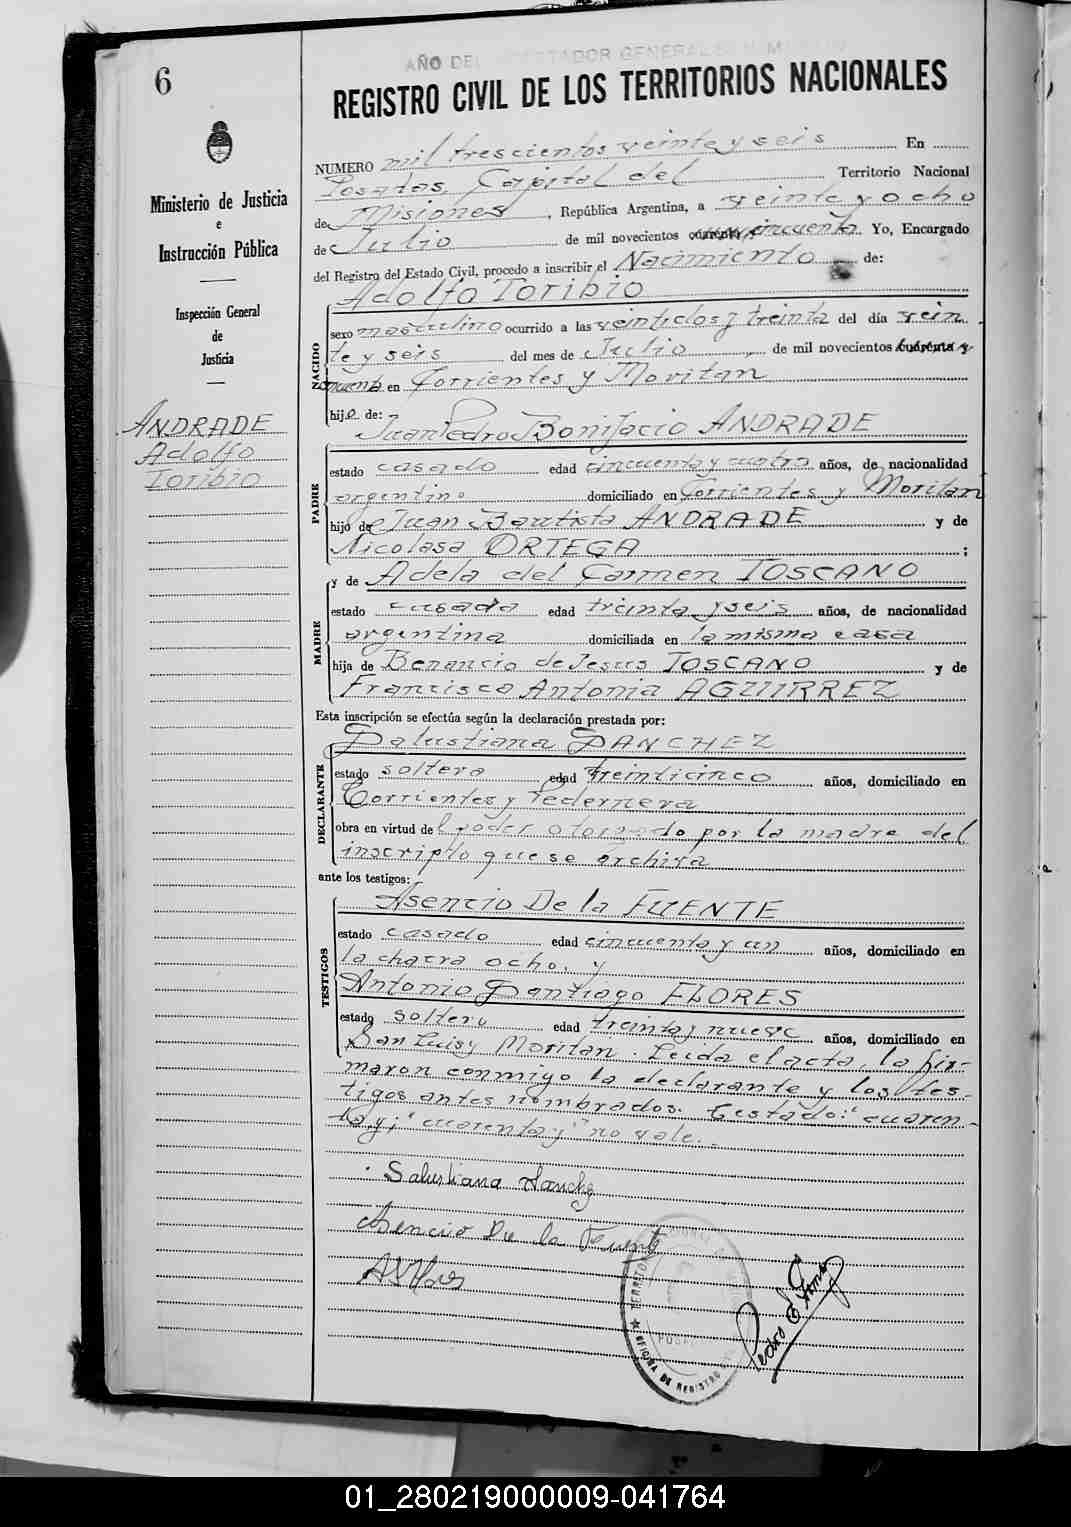 6
AÑO DEL LIBERTADOR GENERAL SAN MARTIN
REGISTRO CIVIL DE LOS TERRITORIOS NACIONALES
Ministerio de Justicia
e
Instrucción Pública
Inspección General
de
Justicia
ANDRADE
Adolfo
Toribio
NUMERO mil trescientos veinte y seis En
Posadas, Capital del Territorio Nacional
de Misiones, República Argentina, a veinte y ocho
de Julio de mil novecientos cuarenta y cincuenta. Yo, Encargado
del Registro del Estado Civil, procedo a inscribir el Nacimiento de:
Adolfo Toribio
NACIDO
sexo masculino ocurrido a las veintidos y treinta del día vein
te y seis del mes de Julio, de mil novecientos cuarenta y
cincuenta en Corrientes y Moritan
hijo de:
Juan Pedro Bonifacio ANDRADE
PADRE
estado casado edad cincuenta y cuatro años, de nacionalidad
argentino domiciliado en Corrientes y Moritan
hijo de Juan Bautista ANDRADE y de
Nicolasa ORTEGA ;
y de Adela del Carmen TOSCANO
MADRE
estado casada edad treinta y seis años, de nacionalidad
argentina domiciliada en la misma casa
hija de Benancio de Jesus TOSCANO y de
Francisca Antonia AGUIRREZ
Esta inscripción se efectúa según la declaración prestada por:
Salustiana SANCHEZ
DECLARANTE
estado soltera edad treinticinco años, domiciliado en
Corrientes y Pedernera
obra en virtud del poder otorgado por la madre del
inscripto que se archiva
ante los testigos:
TESTIGOS
Asencio De la FUENTE
estado casado edad cincuenta y un años, domiciliado en
la chacra ocho, y
Antonio Santiago FLORES
estado soltero edad treinta y nueve años, domiciliado en
San Luis y Moritan. Leida el acta, la fir-
maron conmigo la declarante y los tes-
tigos antes nombrados. Testado: "cuaren-
ta y; "cuarenta y" no vale.
Salustiana Sanchez
Asencio De la Fuente
A S Flores
TERRITORIO NACIONAL DE MISIONES
POSADAS
★ OFICINA DE REGISTRO CIVIL
01_280219000009-041764